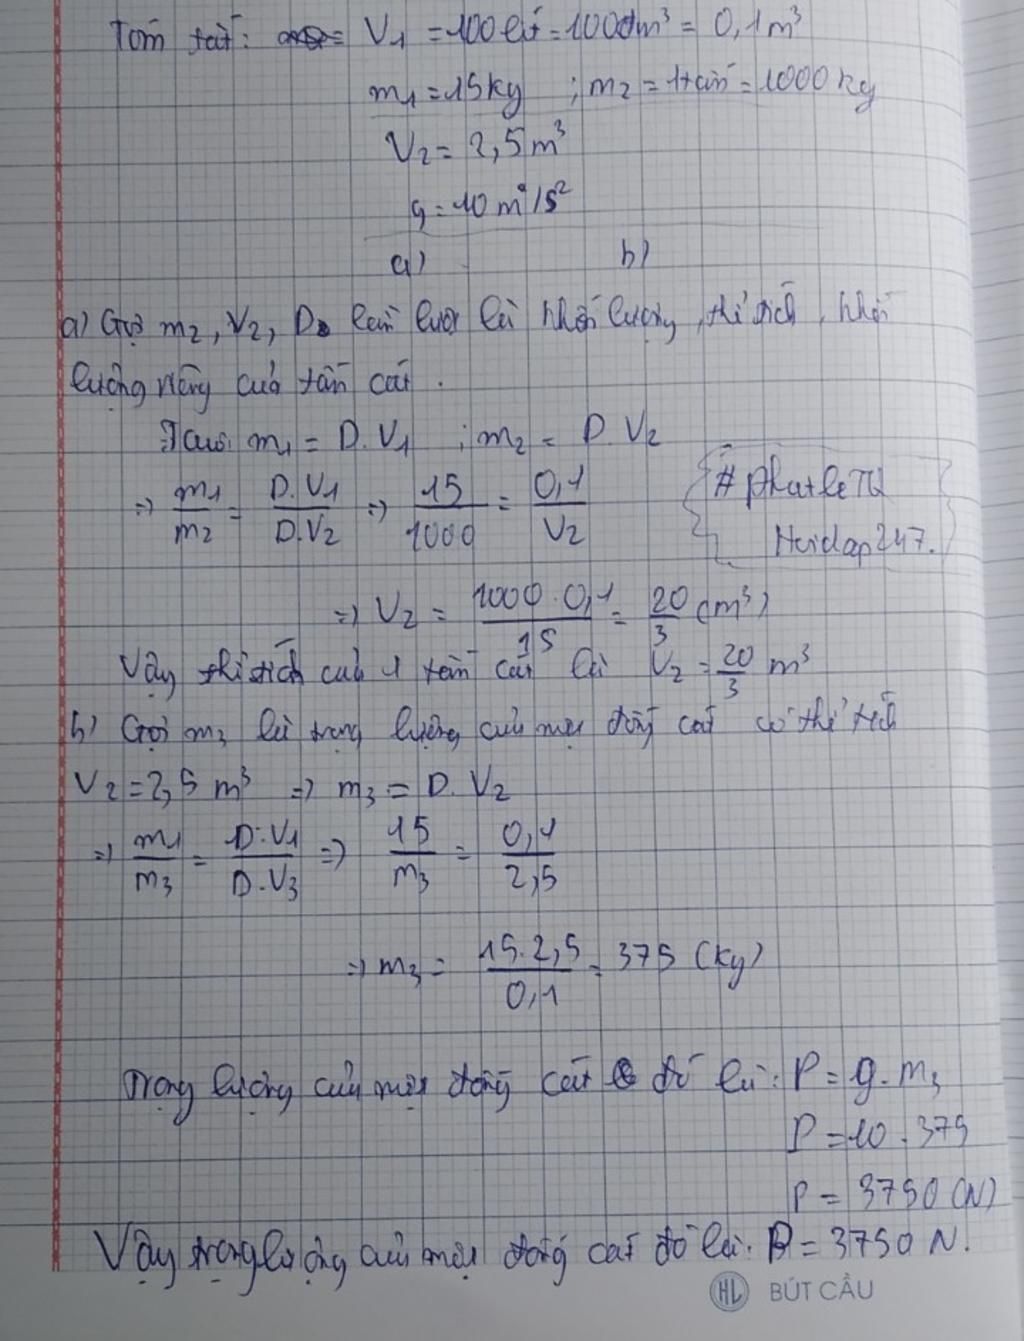 Tóm tắt: V₁ = 100 lít = 100dm³ = 0,1m³
m₁ = 15kg ; m₂ = 1 tấn = 1000kg
V₂ = 2,5m³
g = 10 m/s²
a) b)
a) Gọi m₂, V₂, D lần lượt là khối lượng, thể tích, khối
lượng riêng của tấn cát.
Ta có: m₁ = D.V₁ ; m₂ = D.V₂
=> m₁/m₂ = D.V₁/D.V₂ => 15/1000 = 0,1/V₂
#phatleTQ
Hoidap247.
=> V₂ = 1000.0,1/15 = 20/3 (m³)
Vậy thể tích của 1 tấn cát là V₂ = 20/3 m³
b) Gọi m₃ là trọng lượng của một đống cát có thể tích
V₂ = 2,5 m³ => m₃ = D.V₂
=> m₁/m₃ = D.V₁/D.V₃ => 15/m₃ = 0,1/2,5
=> m₃ = 15.2,5/0,1 = 375 (kg)
Trọng lượng của một đống cát đó là: P = g.m₃
P = 10.375
P = 3750 (N)
Vậy trọng lượng của một đống cát đó là: P = 3750 N.
HL BÚT CẦU